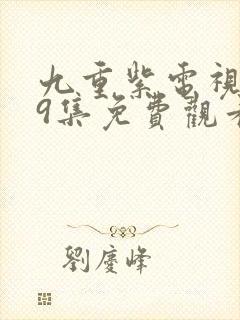 九重紫電視
9集免費觀看
劉慶峰